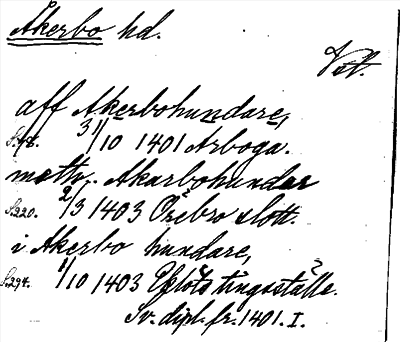 Åkerbo hd.
Vstl.
aff Akerbohundare,
S.98. 31/10 1401 Arboga.
moth, Akarbohundar
S.220. 2/3 1403 Örebro slott.
i Akerbo hundare,
S.294. 1/10 1403 Eflöts tingsställe.
Sv. dipl. fr. 1401. I.